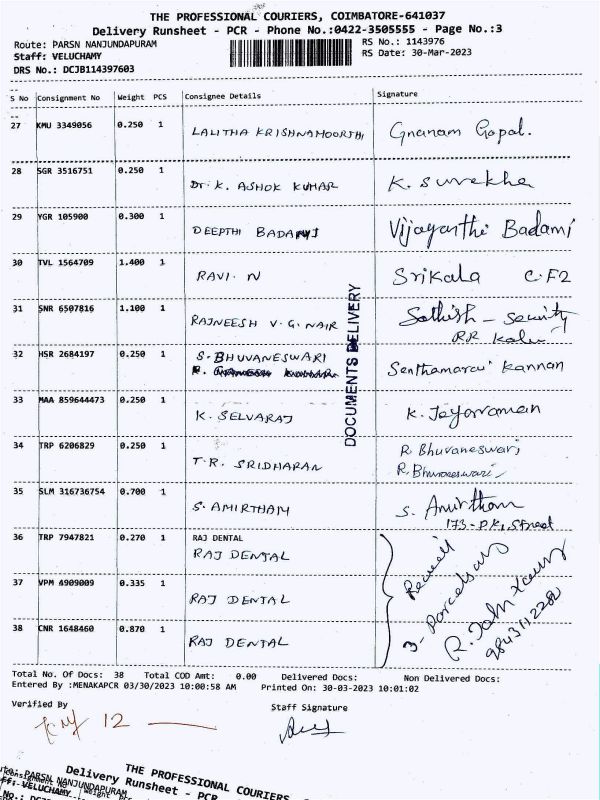 THE PROFESSIONAL COURIERS, COIMBATORE-641037
Delivery Runsheet - PCR - Phone No.:0422-3505555 - Page No.:3
Route: PARSN NANJUNDAPURAM
RS No.: 1143976
Staff: VELUCHAMY
RS Date: 30-Mar-2023
DRS No.: DCJB114397603
S No Consignment No Weight PCS Consignee Details Signature
27 KMU 3349056 0.250 1 LALITHA KRISHNAMOORTHI Gnanam Gopal.
28 SGR 3516751 0.250 1 Dr. K. ASHOK KUMAR K. Surekha
29 YGR 105900 0.300 1 DEEPTHI BADAMI Vijayanthi Badami
30 TVL 1564709 1.400 1 RAVI. N Srikala C-F2
31 SNR 6507816 1.100 1 RAJNEESH V.G. NAIR Sathish - Security
RR
32 HSR 2684197 0.250 1 S. BHUVANESWARI Senthamarai Kannan
33 MAA 859644473 0.250 1 K. SELVARAJ K. Jeyaraman
34 TRP 6206829 0.250 1 T.R. SRIDHARAN R. Bhuvaneswari
R. Bhuvaneswari
35 SLM 316736754 0.700 1 S. AMIRTHAM S. Amirtham
173-P.K. Street
36 TRP 7947821 0.270 1 RAJ DENTAL
RAJ DENTAL
37 VPM 4909009 0.335 1 RAJ DENTAL
38 CNR 1648460 0.870 1 RAJ DENTAL
Received
3- Parcels
R. John
DOCUMENTS DELIVERY
Total No. Of Docs: 38 Total COD Amt: 0.00 Delivered Docs: Non Delivered Docs:
Entered By :MENAKAPCR 03/30/2023 10:00:58 AM Printed On: 30-03-2023 10:01:02
Verified By
Staff Signature
12
THE PROFESSIONAL COURIERS,
Delivery Runsheet - PCR
PARSN NANJUNDAPURAM
VELUCHAMY